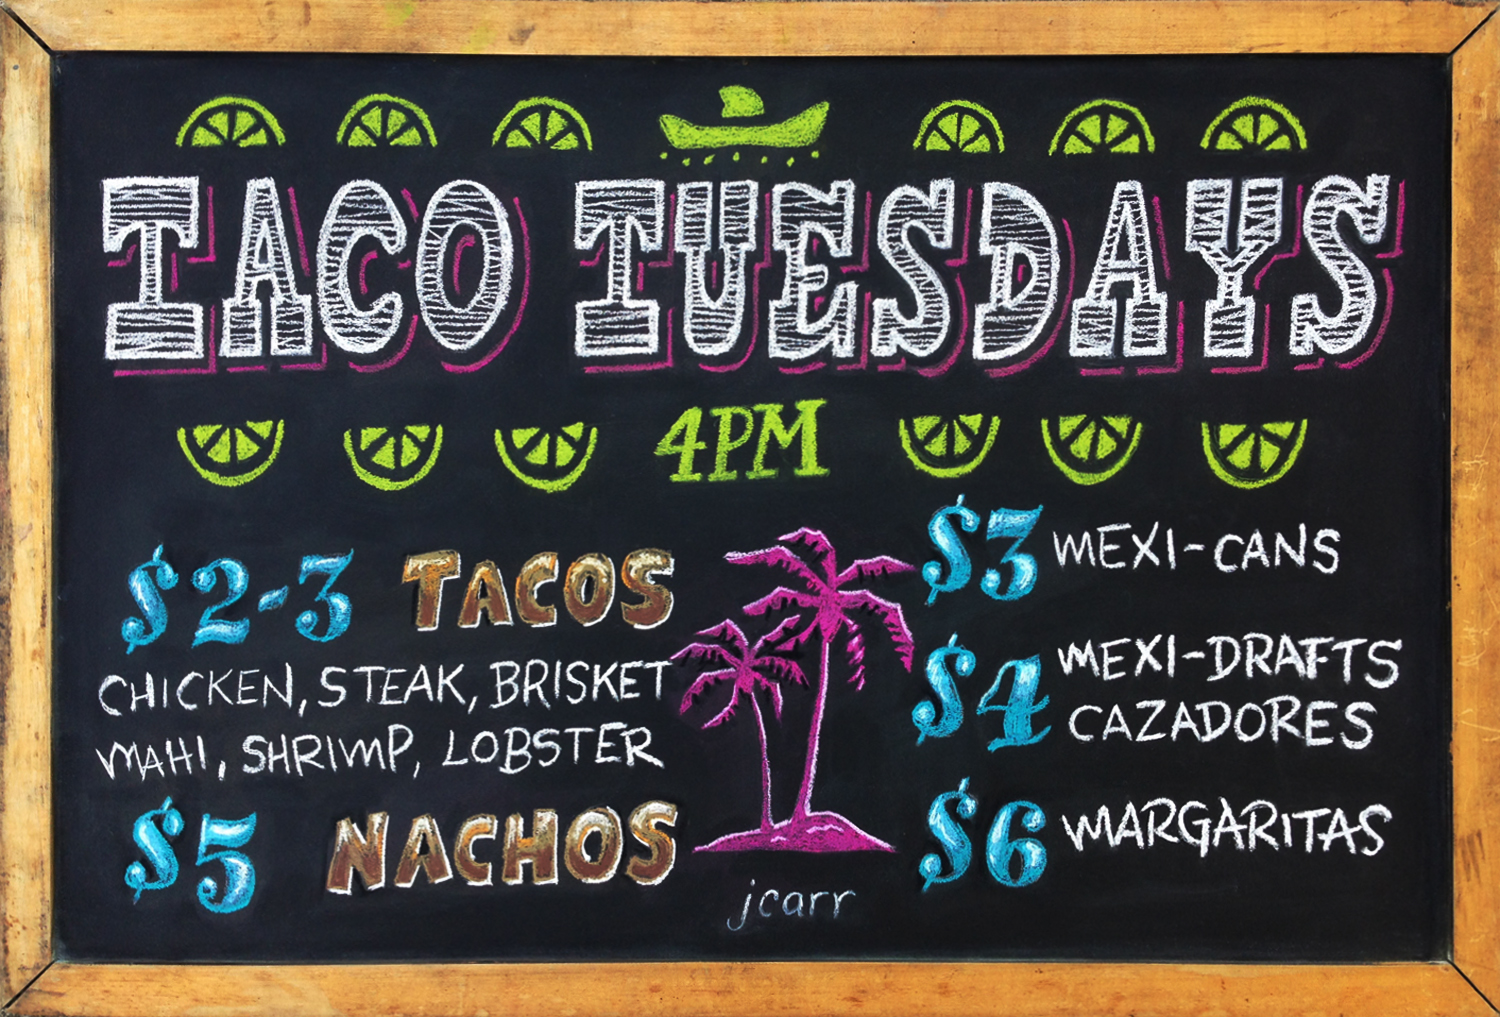 TACO TUESDAYS
4PM
$2-3 TACOS
CHICKEN, STEAK, BRISKET
MAHI, SHRIMP, LOBSTER
$5 NACHOS
$3 MEXI-CANS
$4 MEXI-DRAFTS
CAZADORES
$6 MARGARITAS
jcarr